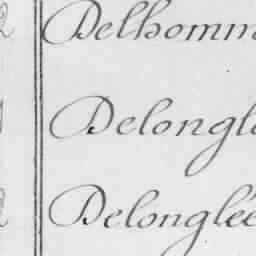 Delhomm
Delongl
Delonglée